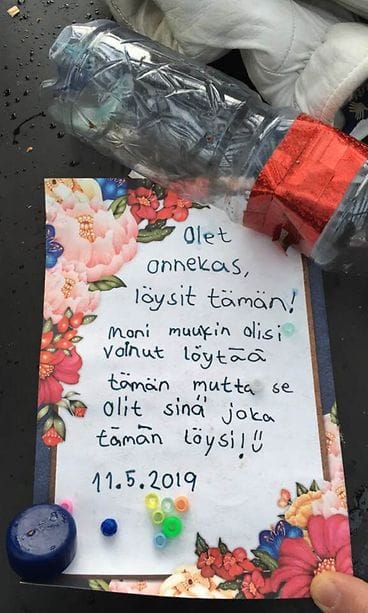 Olet
onnekas,
löysit tämän!
Moni muukin olisi
voinut löytää
tämän mutta se
olit sinä joka
tämän löysi!
11.5.2019